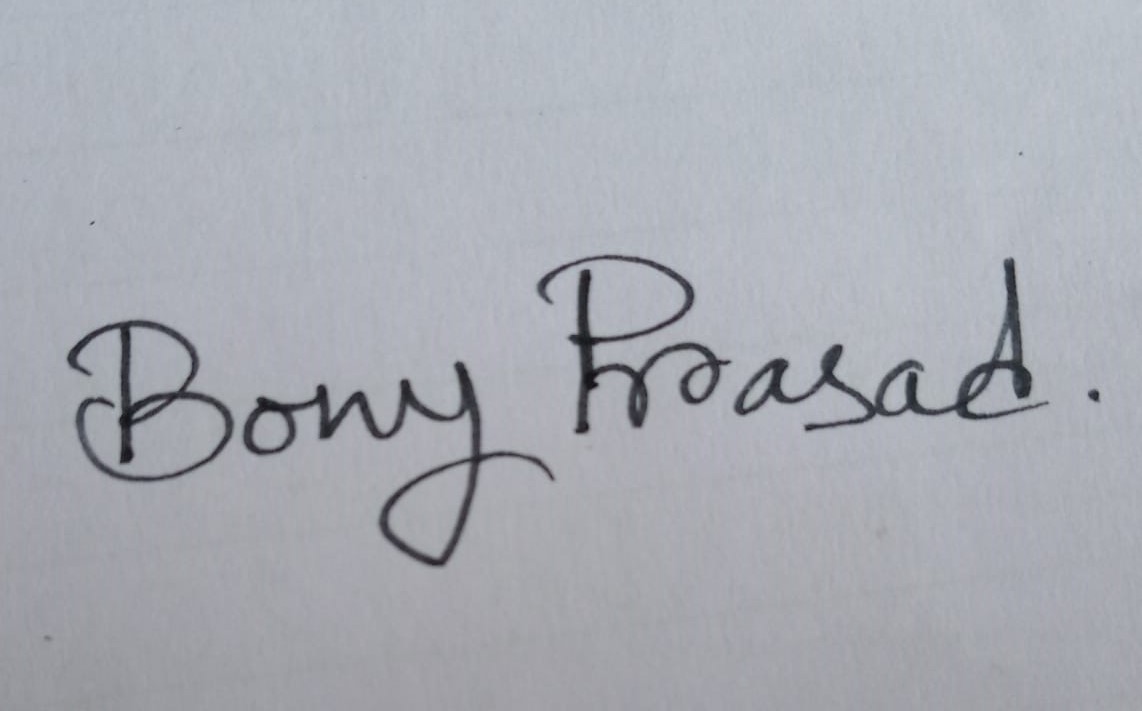 Bony Prasad.